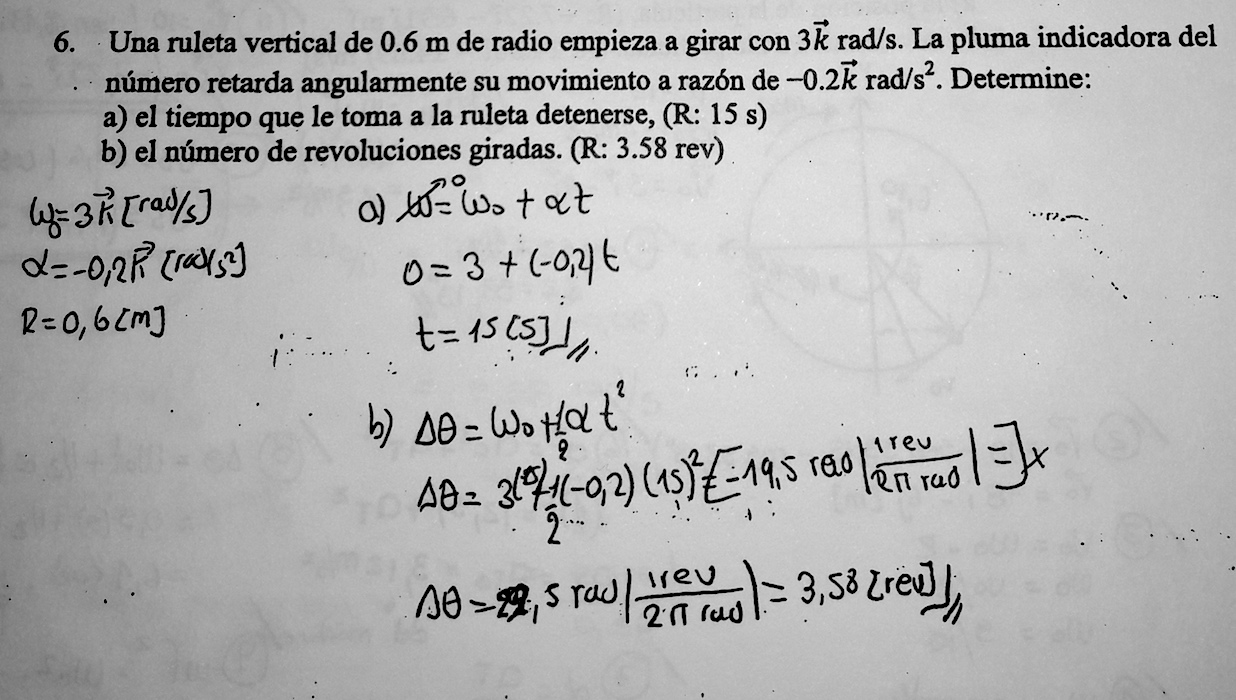 6. Una ruleta vertical de 0.6 m de radio empieza a girar con 3k⃗ rad/s. La pluma indicadora del
número retarda angularmente su movimiento a razón de −0.2k⃗ rad/s². Determine:
a) el tiempo que le toma a la ruleta detenerse, (R: 15 s)
b) el número de revoluciones giradas. (R: 3.58 rev)
ω=3k⃗ [rad/s]
α=-0,2k⃗ [rad/s²]
R=0,6[m]
a) ω⃗⁰=ω₀ + αt
0 = 3 + (-0,2)t
t = 15 [s]
b) Δθ = ω₀ + 1/2 αt²
Δθ = 3(15)+1/2(-0,2)(15)² [=-19,5 rad |1 rev/2π rad| =]x
Δθ = 22,5 rad |1 rev/2π rad| = 3,58 [rev]